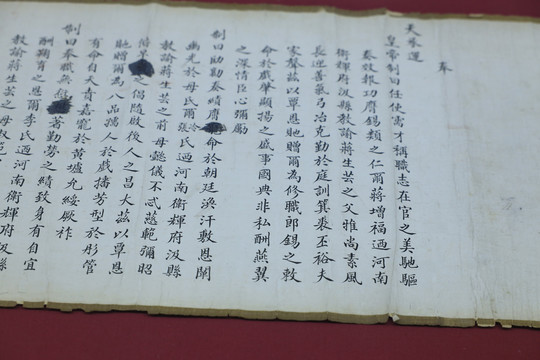 奉
天承運
皇帝制曰任使需才稱職志在官之美馳驅
奏效報功膺錫類之仁爾蔣增福迺河南
衛輝府汲縣教諭蔣生芸之父雅尚素風
長迎善氣弓冶克勤於庭訓箕裘丕裕夫
家聲茲以覃恩貤贈爾為修職郎錫之敕
命於戲肇顯揚之盛事國典非私酬燕翼
之深情臣心彌勵
制曰勛勤奏績膺命於朝廷渙汗敷恩闡
幽光於母氏爾張氏迺河南衛輝府汲縣
教諭蔣生芸之前母懿儀不忒慈範彌昭
之佩隨啟後人之昌大茲以覃恩
貤贈爾為八品孺人於戲播芳型於彤管
有命自天賁嘉寵於黃壚允綏厥祚
制曰奉職無愆著勤勞之績致身有自宜
酬鞠育之恩爾李氏迺河南衛輝府汲縣
教諭蔣生芸之母淑範